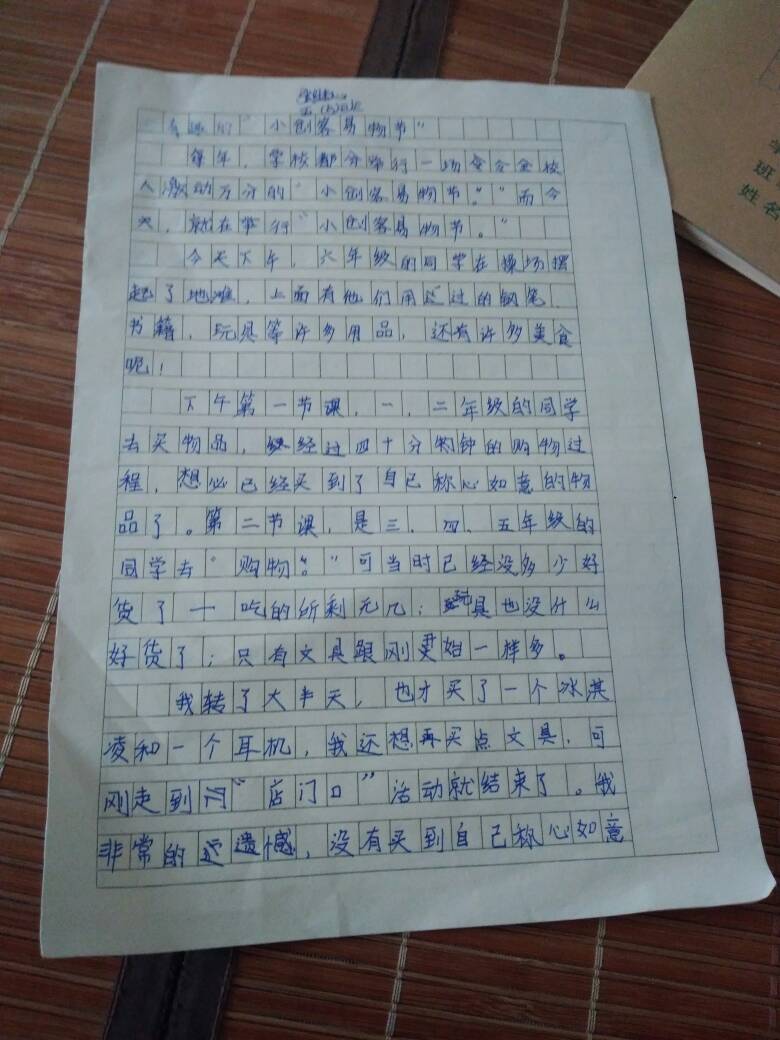 有趣的"小创客易物节"
每年，学校都会举行一场令全校
人激动万分的"小创客易物节。"而今
天，就在举行"小创客易物节。"
今天下午，六年级的同学在操场摆
起了地滩，上面有他们用过的钢笔、
书籍、玩具等许多用品，还有许多美食
呢！
下午第一节课，一、二年级的同学
去买物品，经过四十分钟的购物过
程，想必已经买到了自己称心如意的物
品了。第二节课，是三、四、五年级的
同学去"购物。"可当时已经没多少好
货了一吃的所剩无几；玩具也没什么
好货了；只有文具跟刚开始一样多。
我转了大半天，也才买了一个冰淇
凌和一个耳机，我还想再买点文具，可
刚走到"店门口"活动就结束了。我
非常的遗憾，没有买到自己称心如意
学
班
姓名